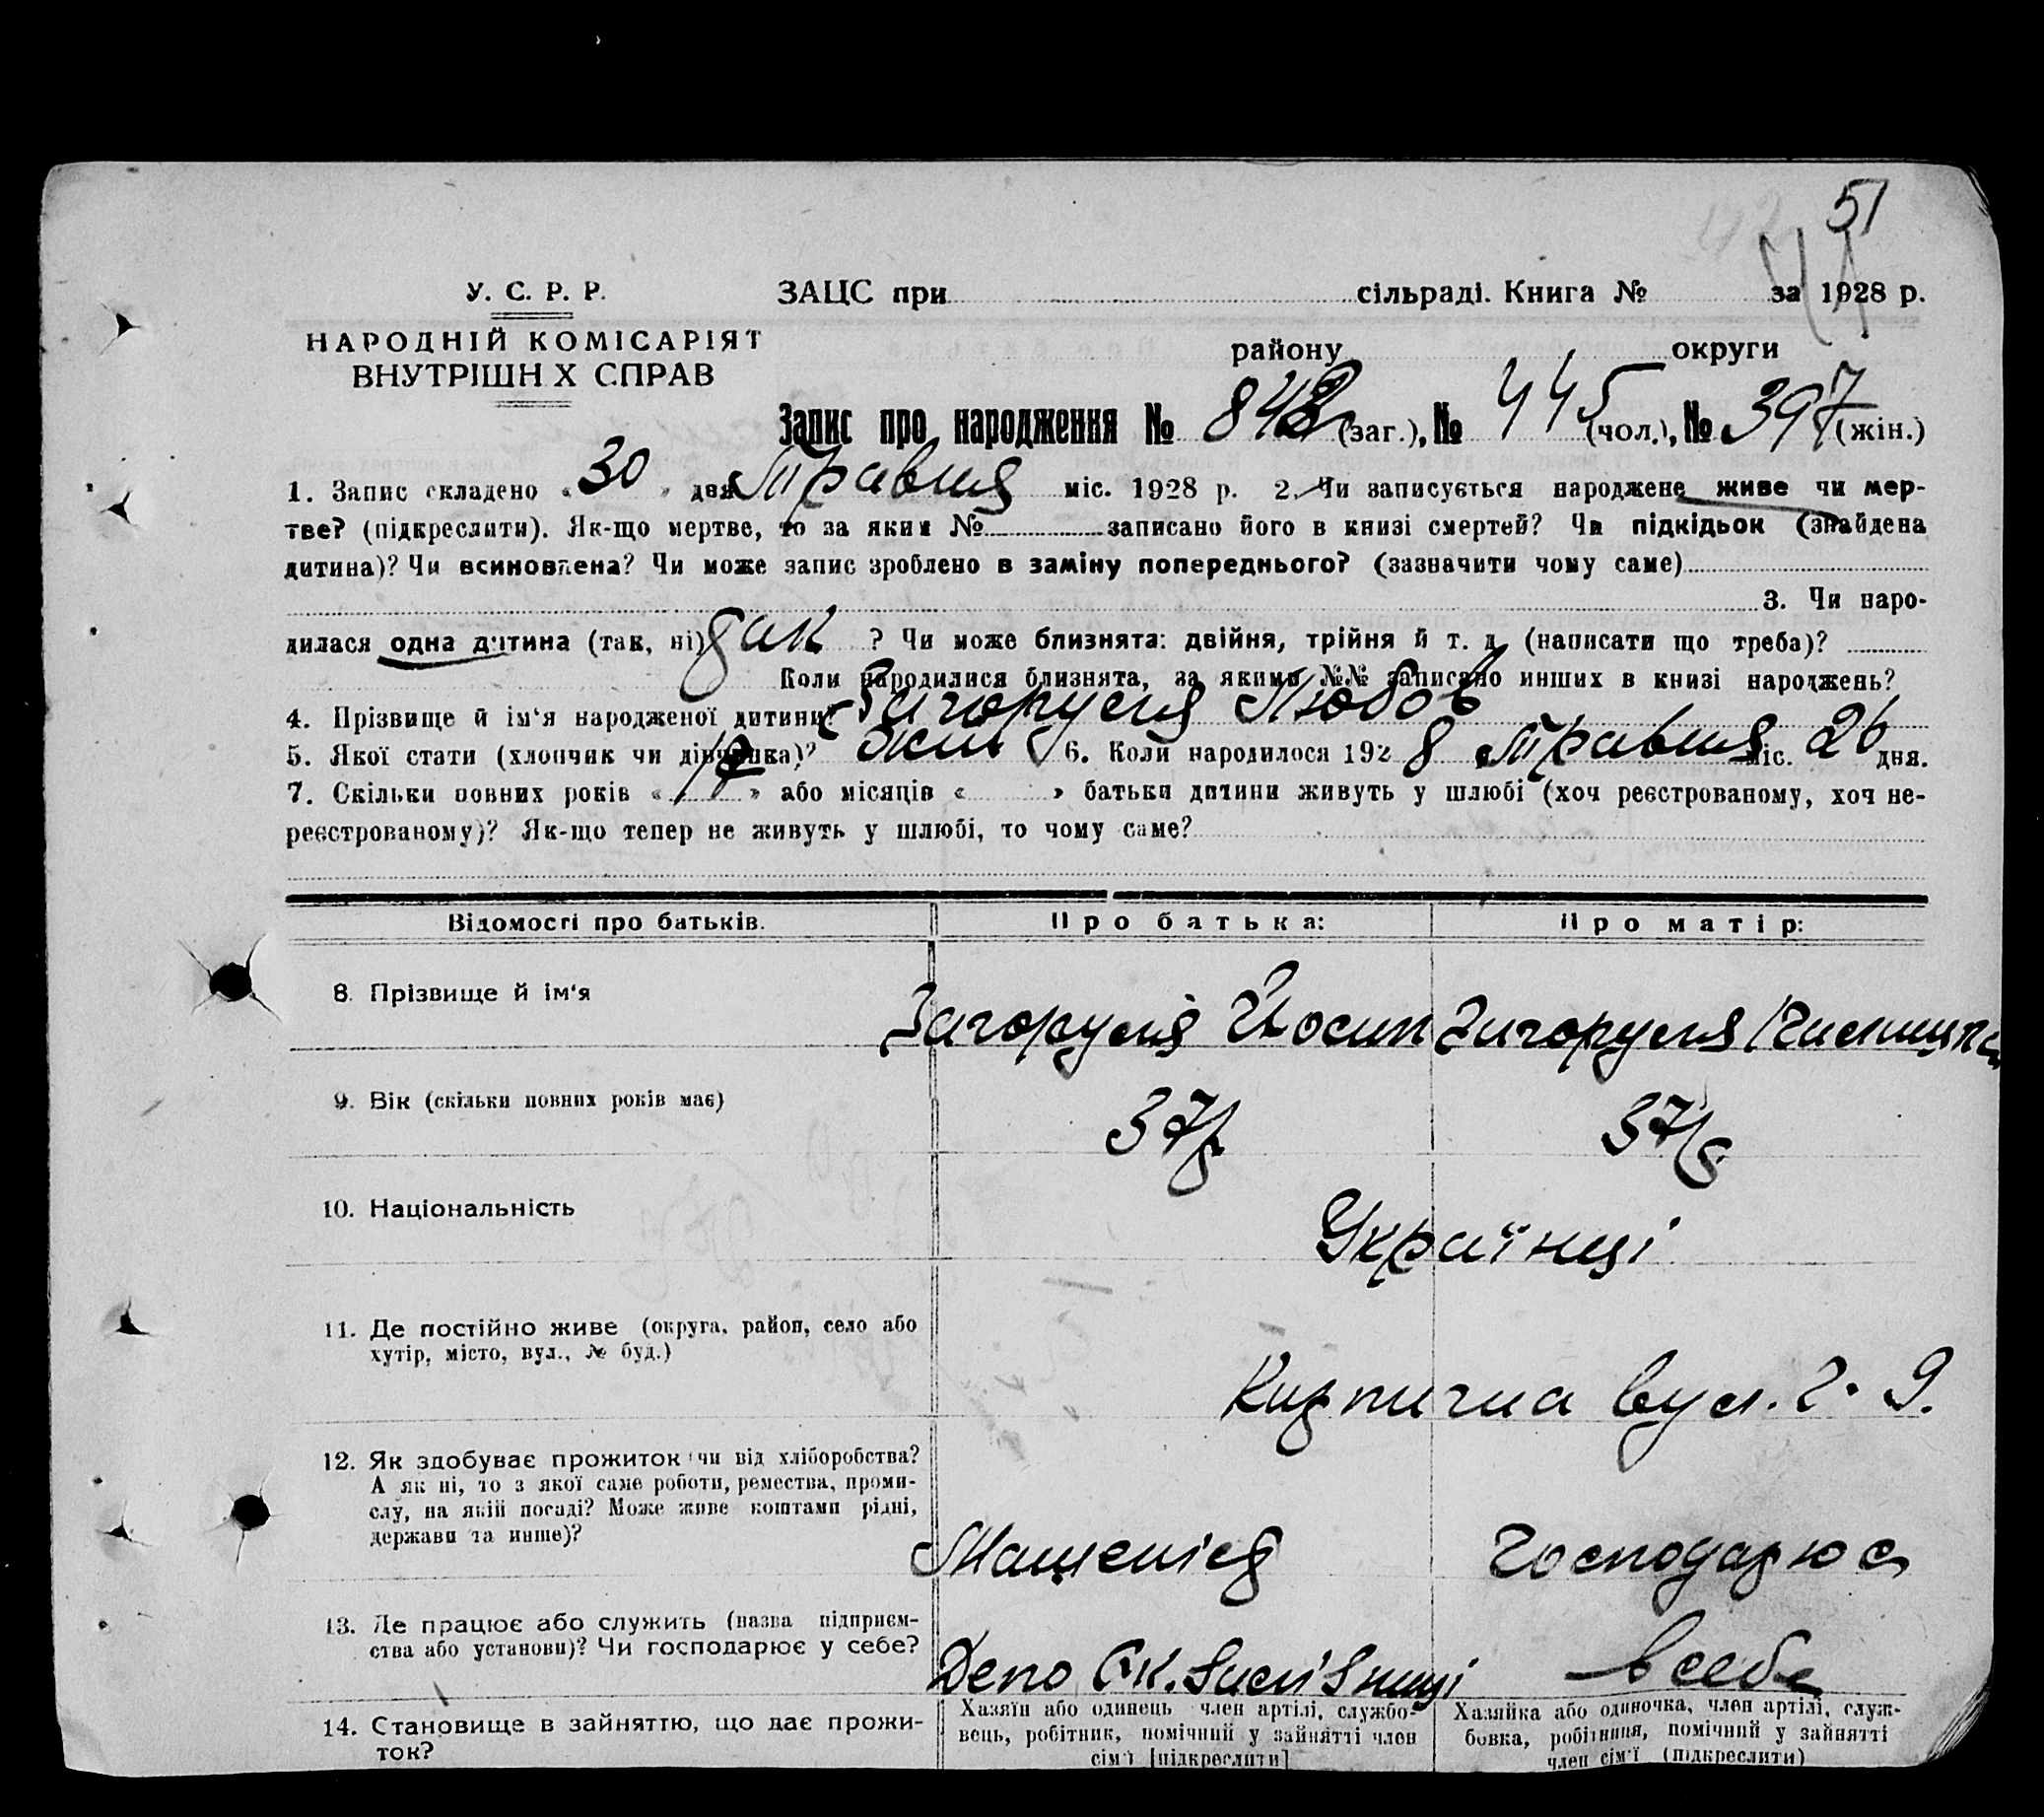 51
У. С. Р. Р.
ЗАЦС при сільраді. Книга № за 1928 р.
НАРОДНІЙ КОМІСАРІЯТ
ВНУТРІШН Х СПРАВ
району округи
Запис про народження № 842 (заг.), № 445 (чол.), № 397 (жін.)
1. Запис складено « 30 » дня Травня міс. 1928 р. 2. Чи записується народжене живе чи мер-
тве? (підкреслити). Як-що мертве, то за яким № записано його в книзі смертей? Чи підкідьок (знайдена
дитина)? Чи всиновлена? Чи може запис зроблено в заміну попереднього? (зазначити чому саме)
3. Чи наро-
дилася одна дитина (так, ні) так ? Чи може близнята: двійня, трійня й т. д. (написати що треба)?
Коли народилися близнята, за якими №№ записано инших в книзі народжень?
4. Прізвище й ім'я народженої дитини? Загоруля Любов
5. Якої стати (хлопчик чи дівчинка)? жін 6. Коли народилося 1928 Травня міс. 26 дня.
7. Скільки повних років « » або місяців « » батьки дитини живуть у шлюбі (хоч реєстрованому, хоч не-
реєстрованому)? Як-що тепер не живуть у шлюбі, то чому саме?
Відомості про батьків. Про батька: Про матір:
8. Прізвище й ім'я Загоруля Йосип Загоруля
9. Вік (скільки повних років має) 37 37
10. Національність Українці
11. Де постійно живе (округа, район, село або
хутір, місто, вул., № буд.)
Кирпична вул. 2. 9.
12. Як здобуває прожиток чи від хліборобства?
А як ні, то з якої саме роботи, ремества, проми-
слу, на якій посаді? Може живе коштами рідні,
держави та инше)?
Господарює
13. Де працює або служить (назва підприєм-
ства або установи)? Чи господарює у себе?
Депо в себе
14. Становище в зайняттю, що дає прожи-
ток?
Хазяїн або одинець член артілі, службо-
вець, робітник, помічний у зайнятті член
сім'ї [підкреслити]
Хазяйка або одиночка, член артілі, служ-
бовка, робітниця, помічний у зайнятті
член сім'ї (підкреслити)